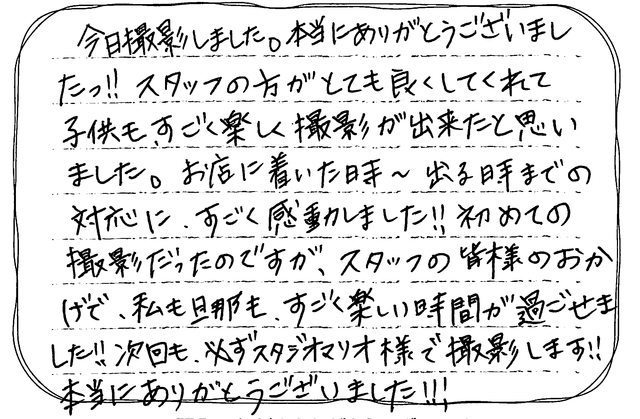 今日撮影しました。本当にありがとうございまし
たっ!! スタッフの方がとても良くしてくれて
子供も、すごく楽しく撮影が出来たと思い
ました。お店に着いた時〜出る時までの
対応に、すごく感動しました!! 初めての
撮影だったのですが、スタッフの皆様のおか
げで、私も旦那も、すごく楽しい時間が過ごせま
した!! 次回も、必ずスタジオマリオ様で撮影します!!
本当にありがとうございました!!!